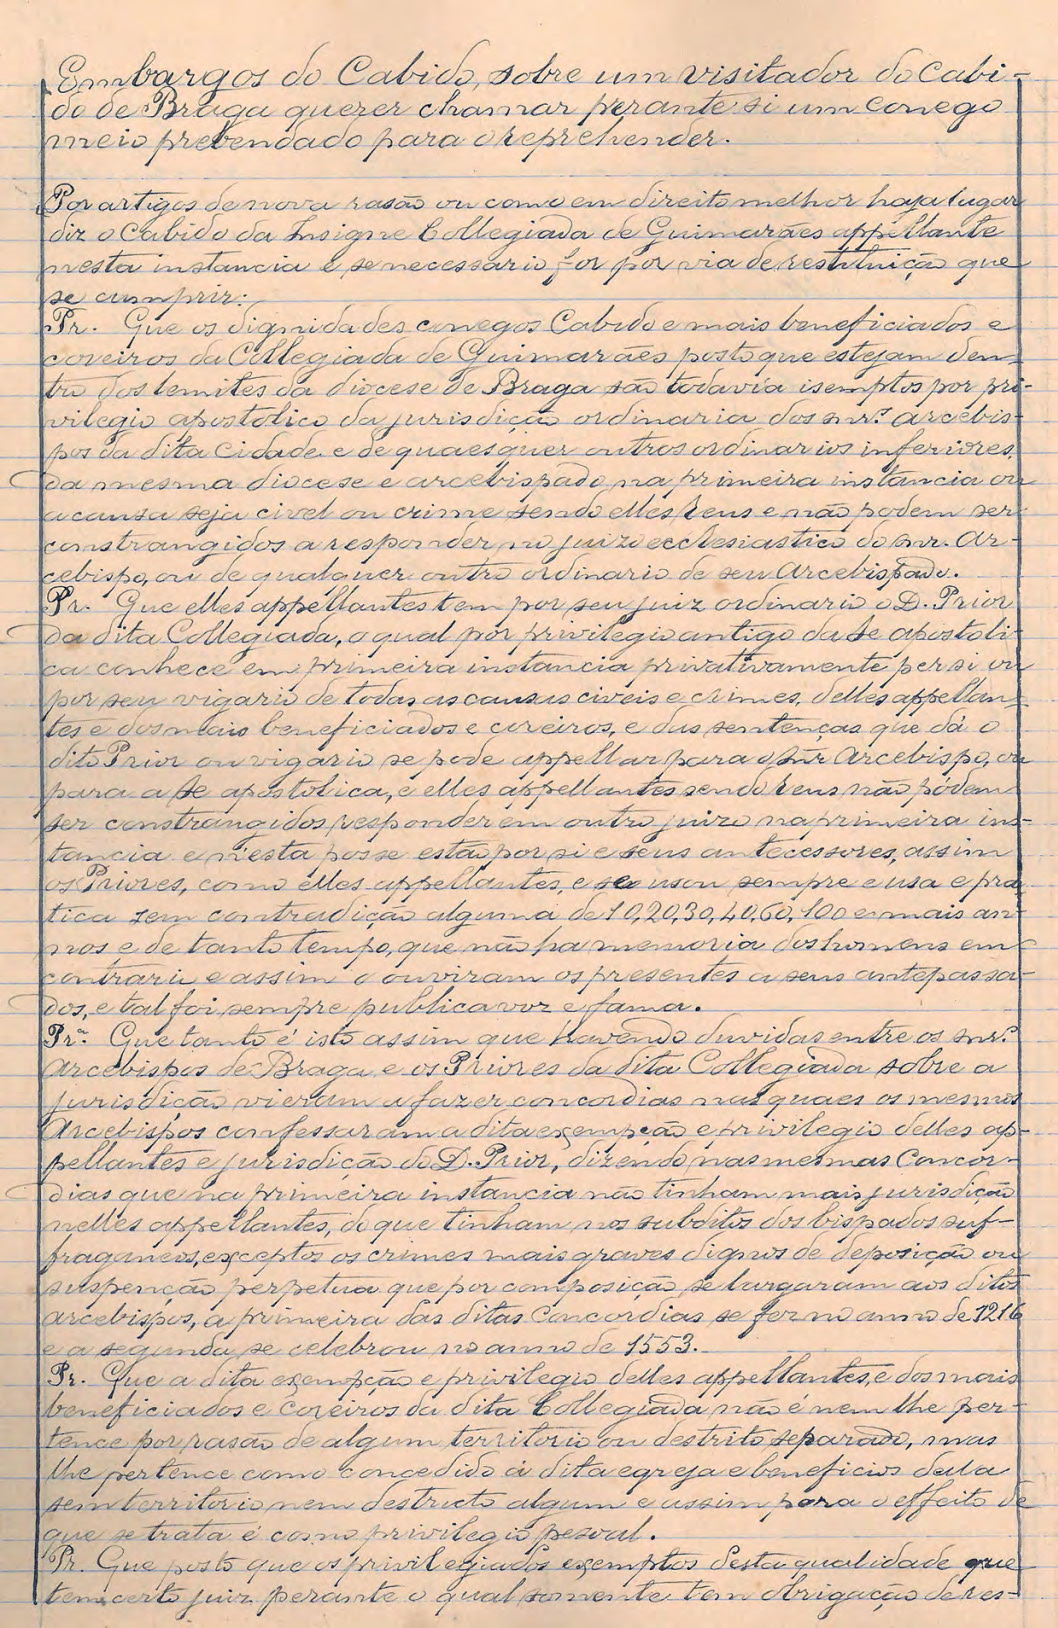 Embargos do Cabido, sobre um visitador do Cabi-
do de Braga querer chamar perante si um conego
meio prebendado para o reprehender.
Por artigos de nova rasão ou como em direito melhor haja lugar
diz o Cabido da Insigne Collegiada de Guimarães appellante
nesta instancia e se necessario for por via de restituição que
se cumprir:
Pr. Que os dignidades conegos Cabido e mais beneficiados e
coreiros da Collegiada de Guimarães posto que estejam den-
tro dos lemites da diocese de Braga são todavia isemptos por pri-
vilegio apostolico da jurisdição ordinaria dos snr.s arcebis-
pos da dita Cidade e de quaesquer outros ordinarios inferiores
da mesma diocese e arcebispado na primeira instancia ou
a causa seja civel ou crime sendo elles reus e não podem ser
constrangidos a responder no juizo ecclesiastico do snr. Ar-
cebispo, ou de qualquer outro ordinario de seu Arcebispado.
Pr. Que elles appellantes tem por seu juiz ordinario o D. Prior
da dita Collegiada, o qual por privilegio antigo da Se apostoli-
ca conhece em primeira instancia privativamente per si ou
por seu vigario de todas as causas civeis e crimes, delles appellan-
tes e dos mais beneficiados e coreiros, e das sentenças que dá o
dito Prior ou vigario se pode appellar para o Snr Arcebispo, ou
para a Se apostolica, e elles appellantes sendo reus não podem
ser constrangidos responder em outro juizo na primeira ins-
tancia e n'esta posse estão por si e seus antecessores, assim
os Priores, como elles appellantes, e se usou sempre e usa e pra
tica sem contradição alguma de 10, 20, 30, 40, 60, 100 e mais an-
nos e de tanto tempo, que não ha memoria dos homens em
contrario e assim o ouviram os presentes a seus antepassa-
dos, e tal foi sempre publica voz e fama.
Pr. Que tanto é isto assim que havendo duvidas entre os snr.s
Arcebispos de Braga e os Priores da dita Collegiada sobre a
jurisdição vieram a fazer concordias nas quaes os mesmos
Arcebispos confessaram a dita exempção e privilegio delles ap-
pellantes e jurisdição do D. Prior, dizendo nas mesmas Concor-
dias que na primeira instancia não tinham mais jurisdição
nelles appellantes, do que tinham nos subditos dos bispados suf-
fraganeos, exceptos os crimes mais graves dignos de deposição ou
suspenção perpetua que por composição se largaram aos ditos
arcebispos, a primeira das ditas Concordias se fez no anno de 1216
e a segunda se celebrou no anno de 1553.
Pr. Que a dita exempção e privilegio delles appellantes, e dos mais
beneficiados e Coreiros da dita Collegiada não é nem lhe per-
tence por rasão de algum territorio ou destrito separado, mas
lhe pertence como concedido á dita egreja e beneficios della
sem territorio nem destricto algum e assim para o effeito de
que se trata é como privilegio pesoal.
Pr. Que posto que os privilegiados exemptos desta qualidade que
tem certo juiz perante o qual somente tem obrigação de res-